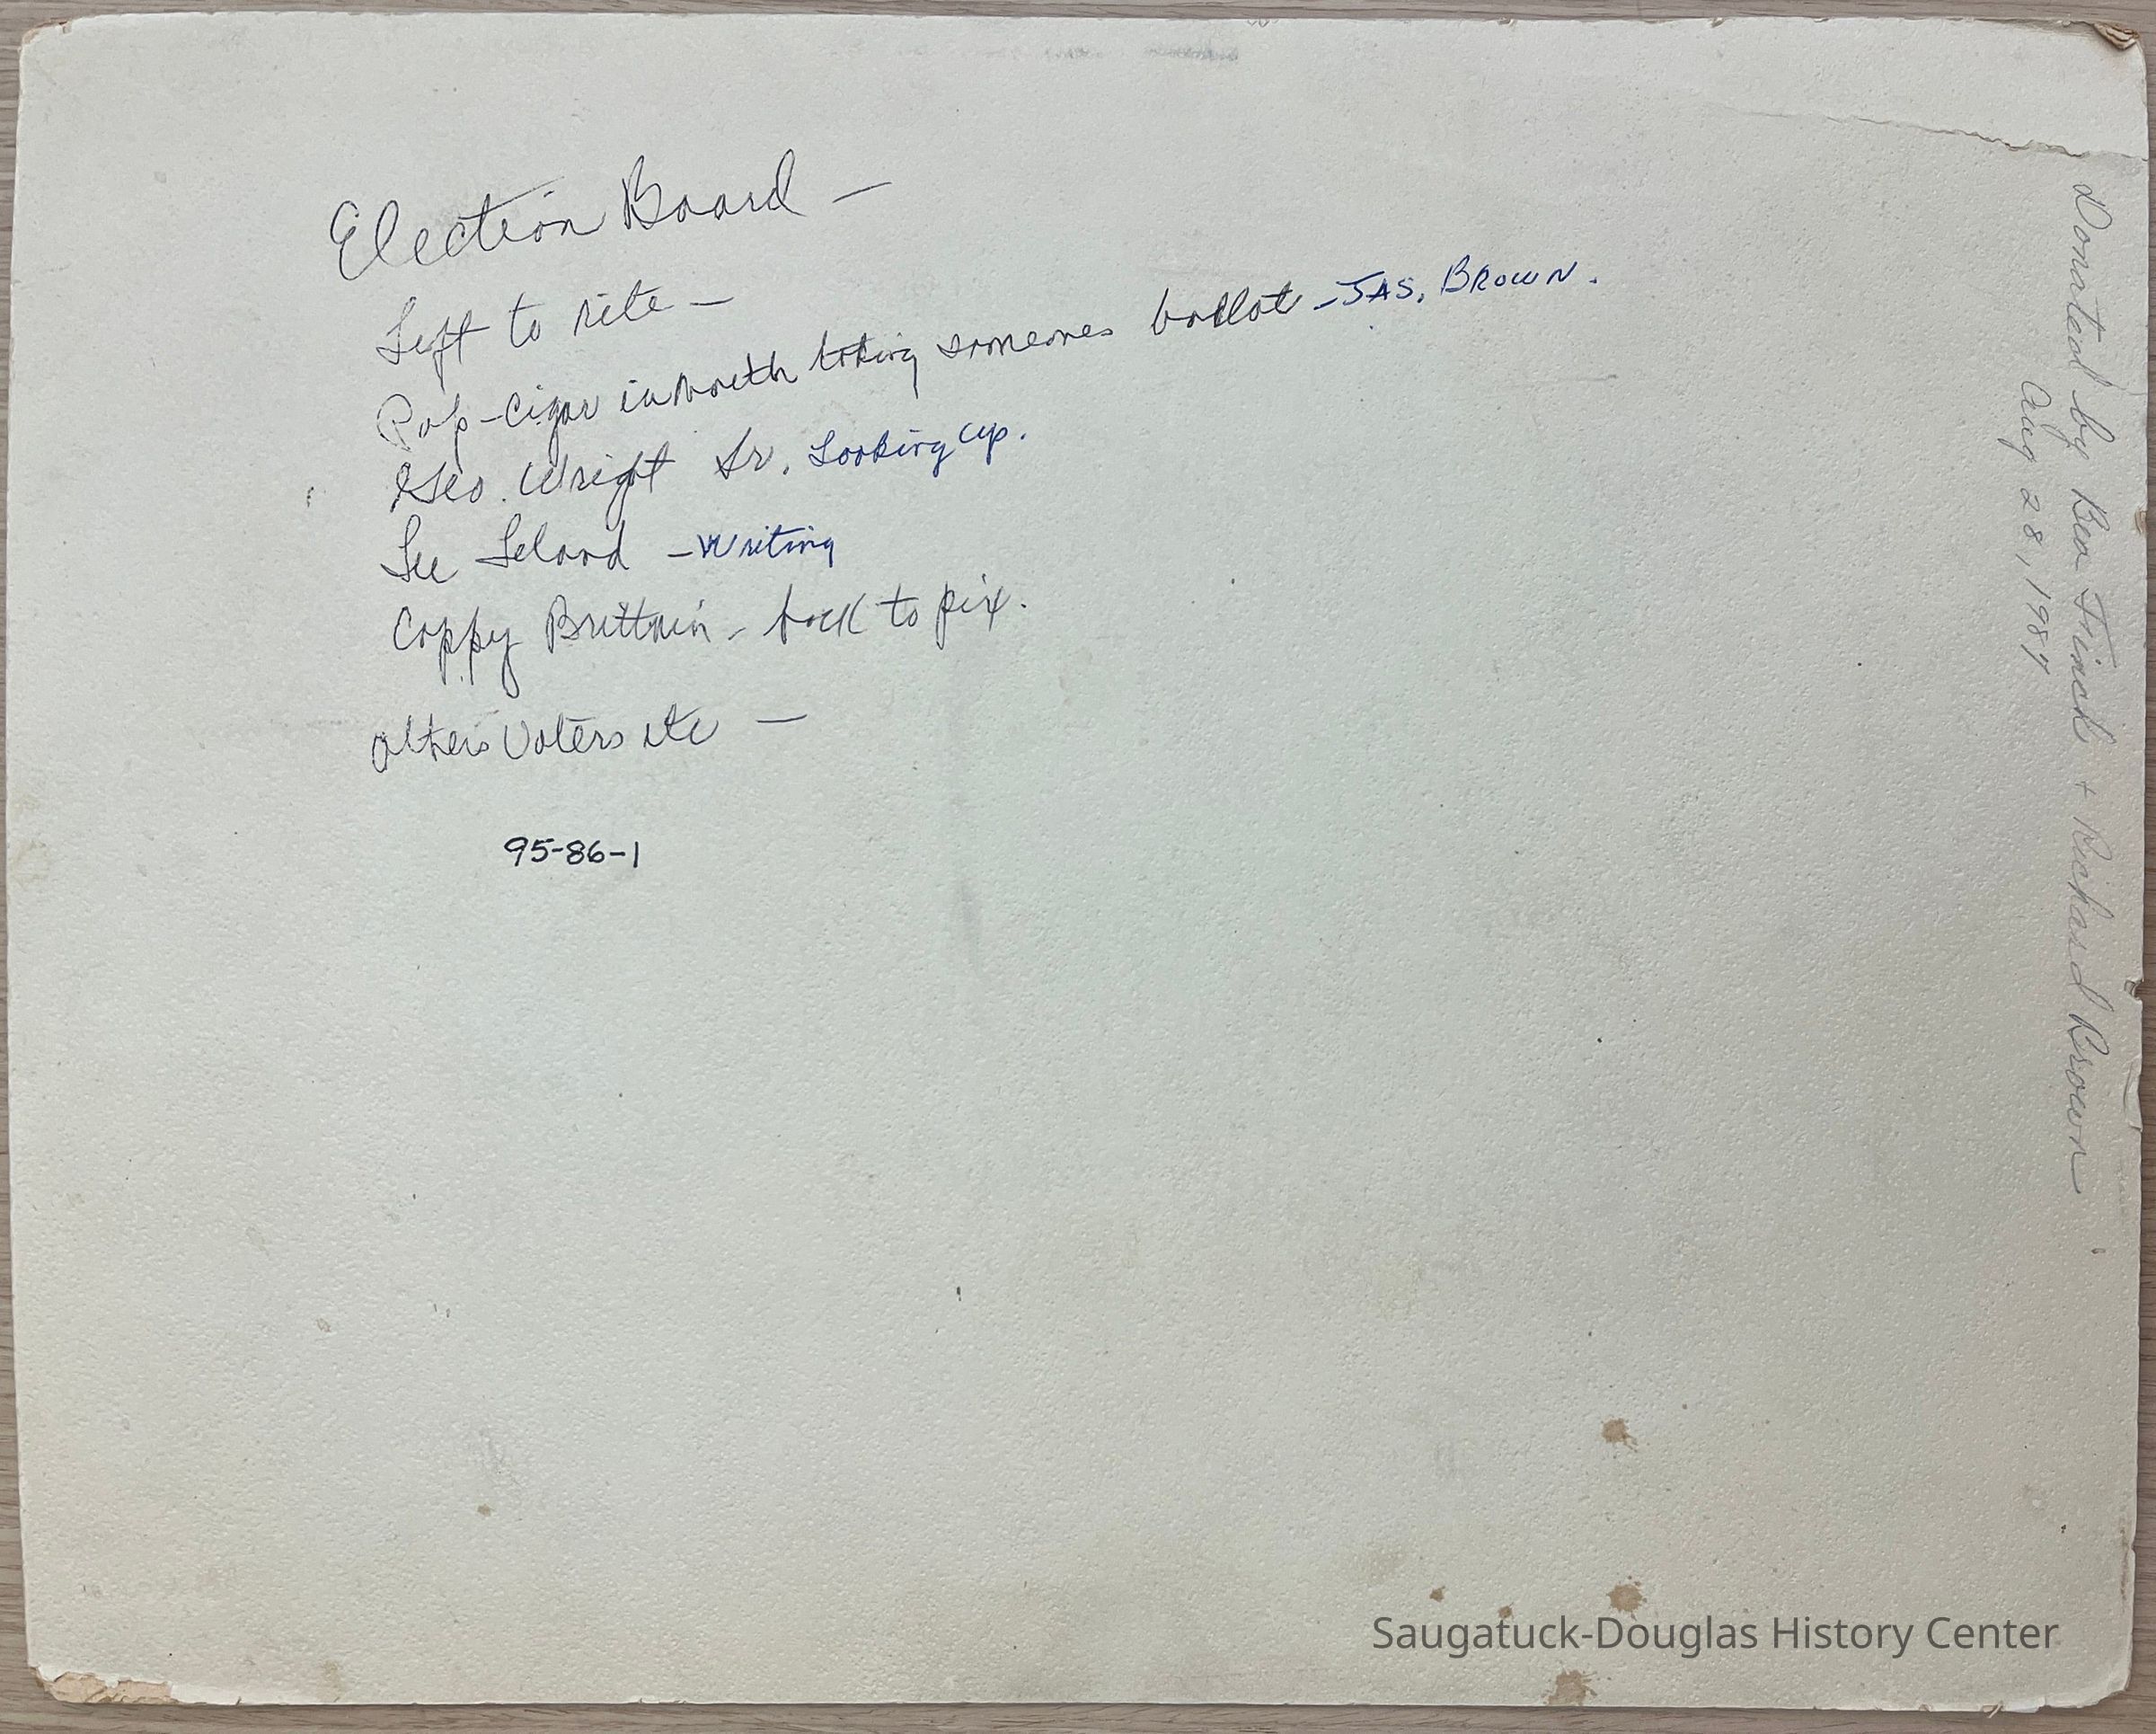 Election Board —
Left to rite —
Pop - Cigar in mouth taking someones ballot - JAS. BROWN.
Geo. Wright Sr. Looking up.
Lee Leland - Writing
Cappy Brittain - back to pix.
others Voters etc —
95-86-1
Donated by Bea Frinck + Richard Brown
Aug 28, 1987
Saugatuck-Douglas History Center